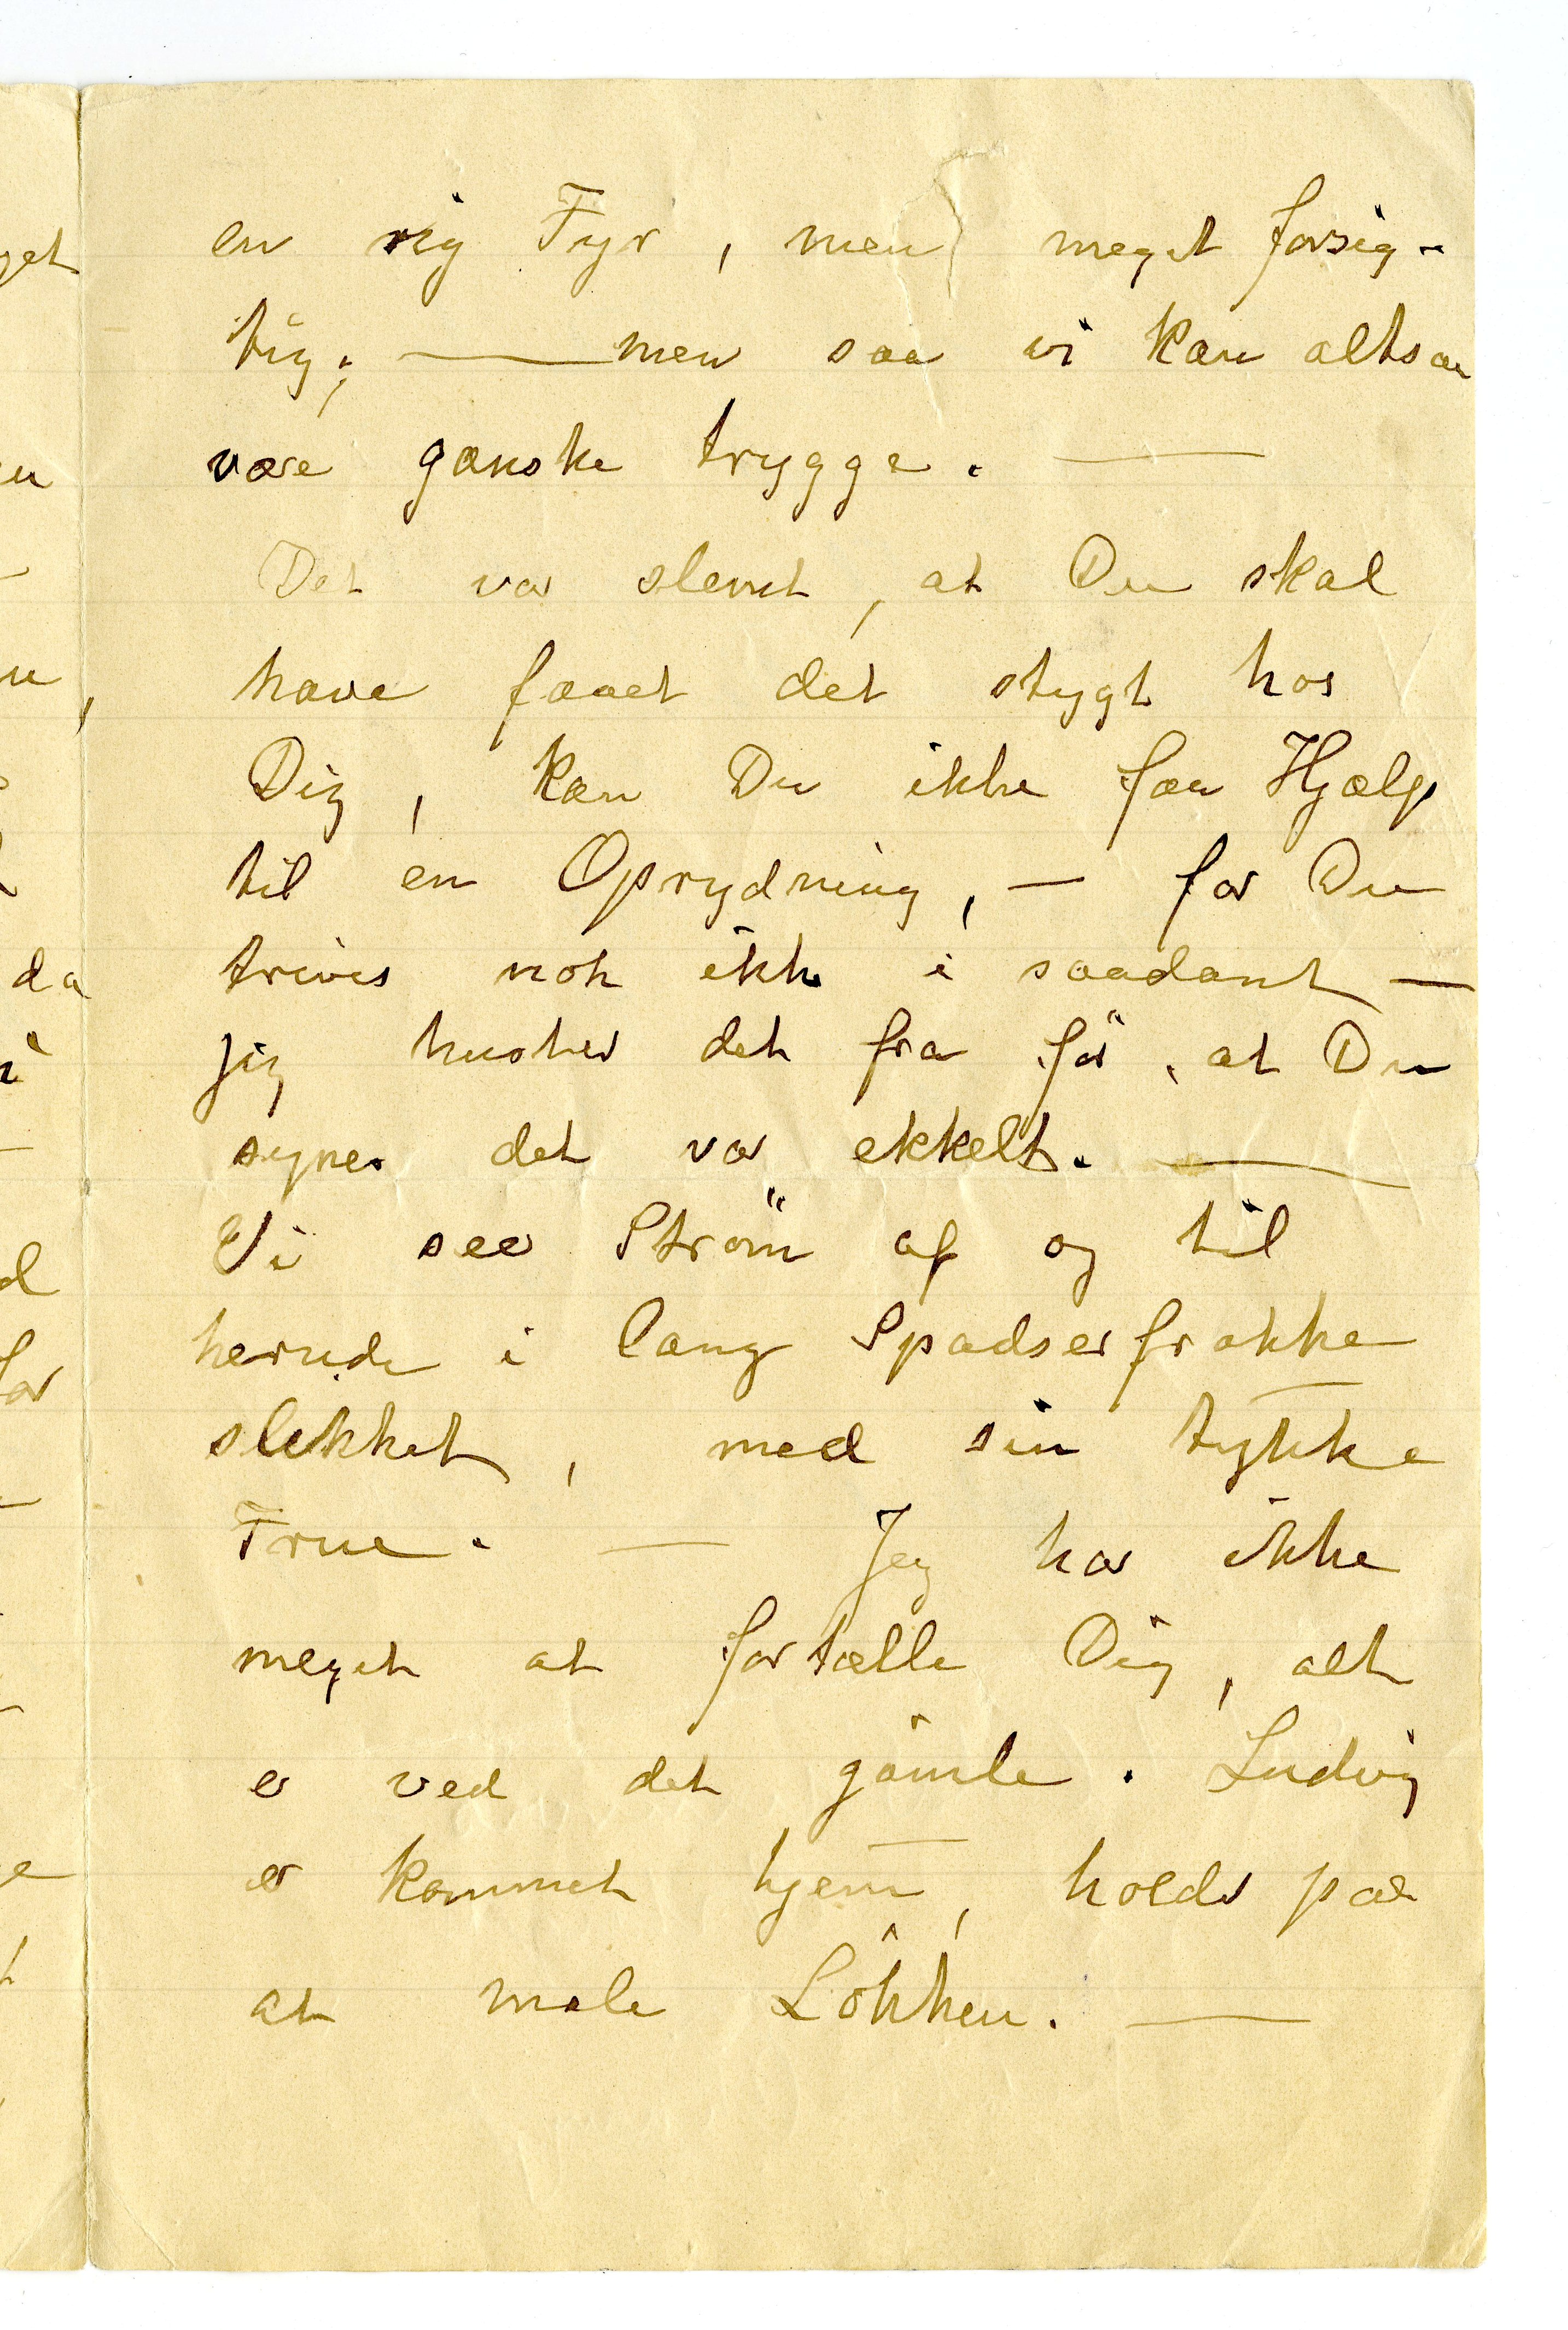 en rig Fyr, men meget forsig-
tig; — men saa vi kan altsaa
være ganske trygge. —
Det var slemt, at Du skal
have faaet det stygt hos
Dig, kan Du ikke faa Hjælp
til en Oprydning, — for Du
trives nok ikke i saadant —
jeg husker det fra för, at Du
synes det var ekkelt. —
Vi seer Ström af og til
herude i lang Spadserfrakke
slikket, med sin tykke
Frue. — Jeg har ikke
meget at fortælle Dig, alt
er ved det gamle. Ludvig
er kommet hjem, holder paa
at male Lökken. —